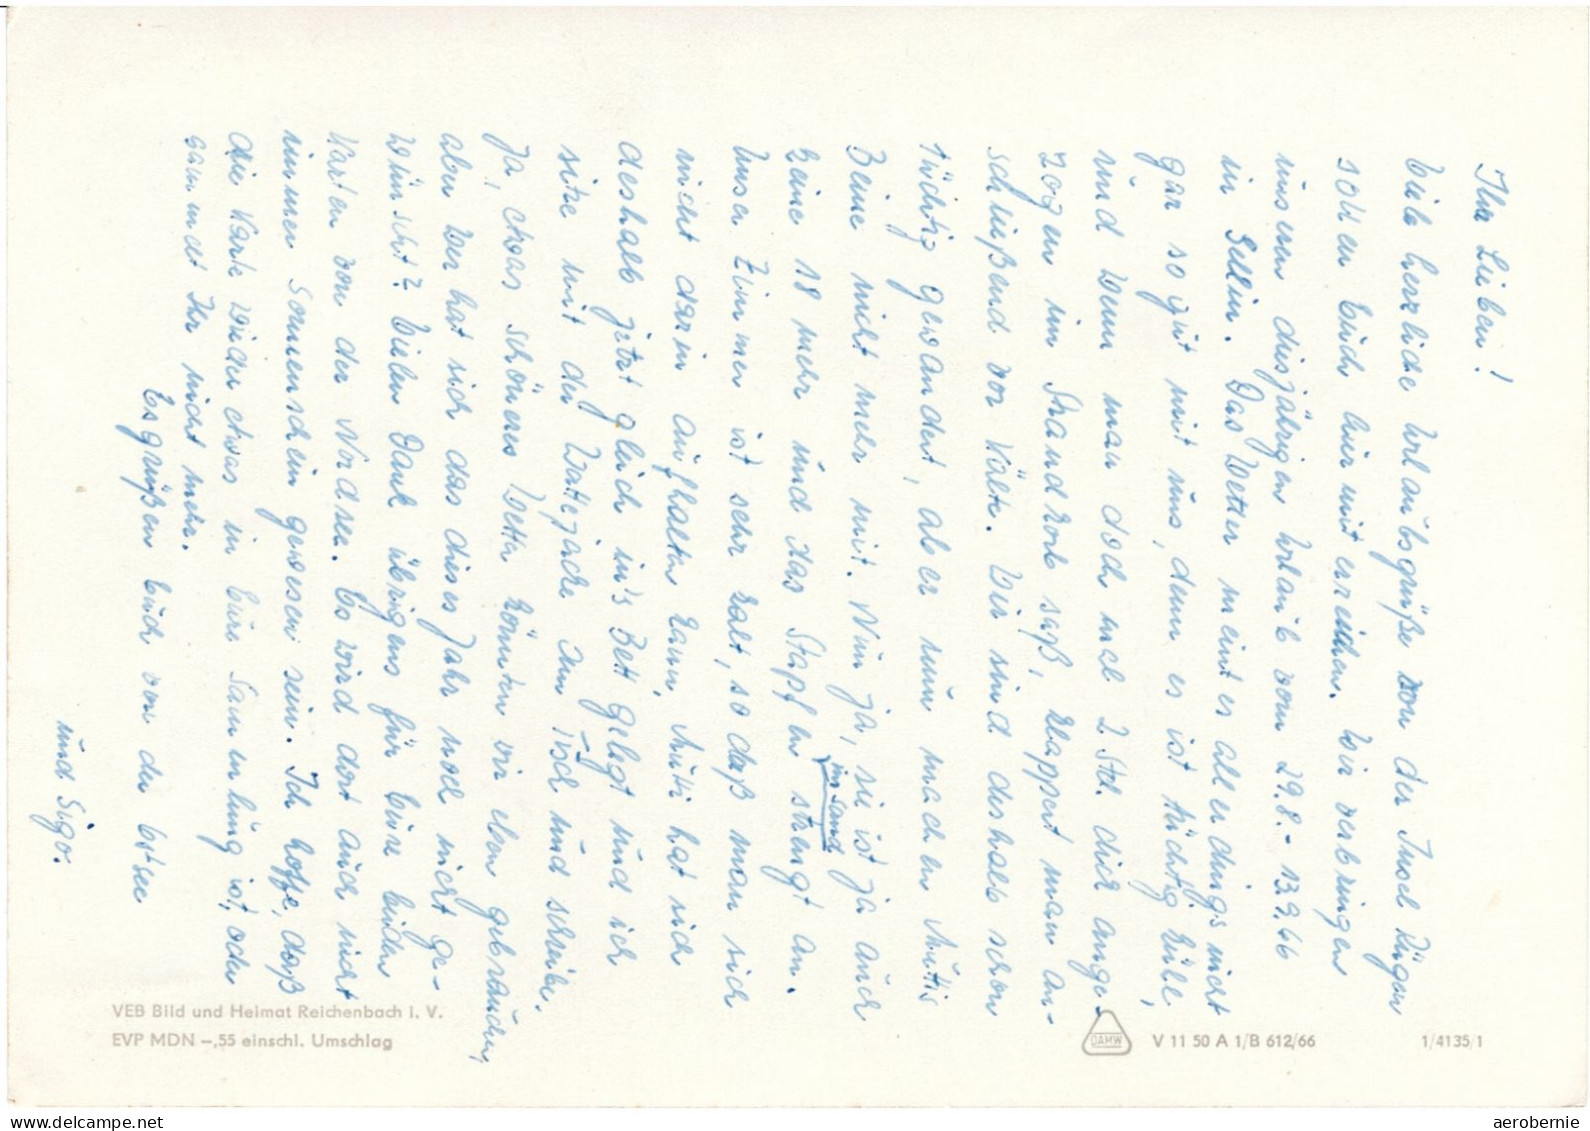 Ihr Lieben!
Viele herzliche Urlaubsgrüße von der Insel Rügen
sollen Euch hiermit erreichen. Wir verbringen
unseren diesjährigen Urlaub vom 29.8.- 13.9.66
in Sellin. Das Wetter meint es allerdings nicht
gar so gut mit uns, denn es ist tüchtig kühl,
und wenn man doch mal 2 Std. dick ange-
zogen im Strandkorb saß, klappert man an-
schließend vor Kälte. Wir sind deshalb schon
tüchtig gewandert, aber nun machen Muttis
Beine nicht mehr mit. Nun ja, sie ist ja auch
keine 18 mehr und das Stapfen im Sand strengt an.
Unser Zimmer ist sehr kalt, so daß man sich
nicht darin aufhalten kann, Mutti hat sich
deshalb jetzt gleich in's Bett gelegt und ich
sitze mit der Wattejacke am Tisch und schreibe.
Ja, etwas schöneres Wetter könnten wir eben gebrauchen,
aber wer hat sich das dieses Jahr noch nicht ge-
wünscht? Vielen Dank übrigens für Eure beiden
Karten von der Nordsee. Es wird dort auch nicht
immer Sonnenschein gewesen sein. Ich hoffe, daß
die Karte wieder etwas in Eure Sammlung ist, oder
sammelt Ihr nicht mehr.
Es grüßen Euch von der Ostsee
und Sigr.
VEB Bild und Heimat Reichenbach i. V.
EVP MDN –,55 einschl. Umschlag
DAMW
V 11 50 A 1/B 612/66
1/4135/1
www.delcampe.net
aerobernie